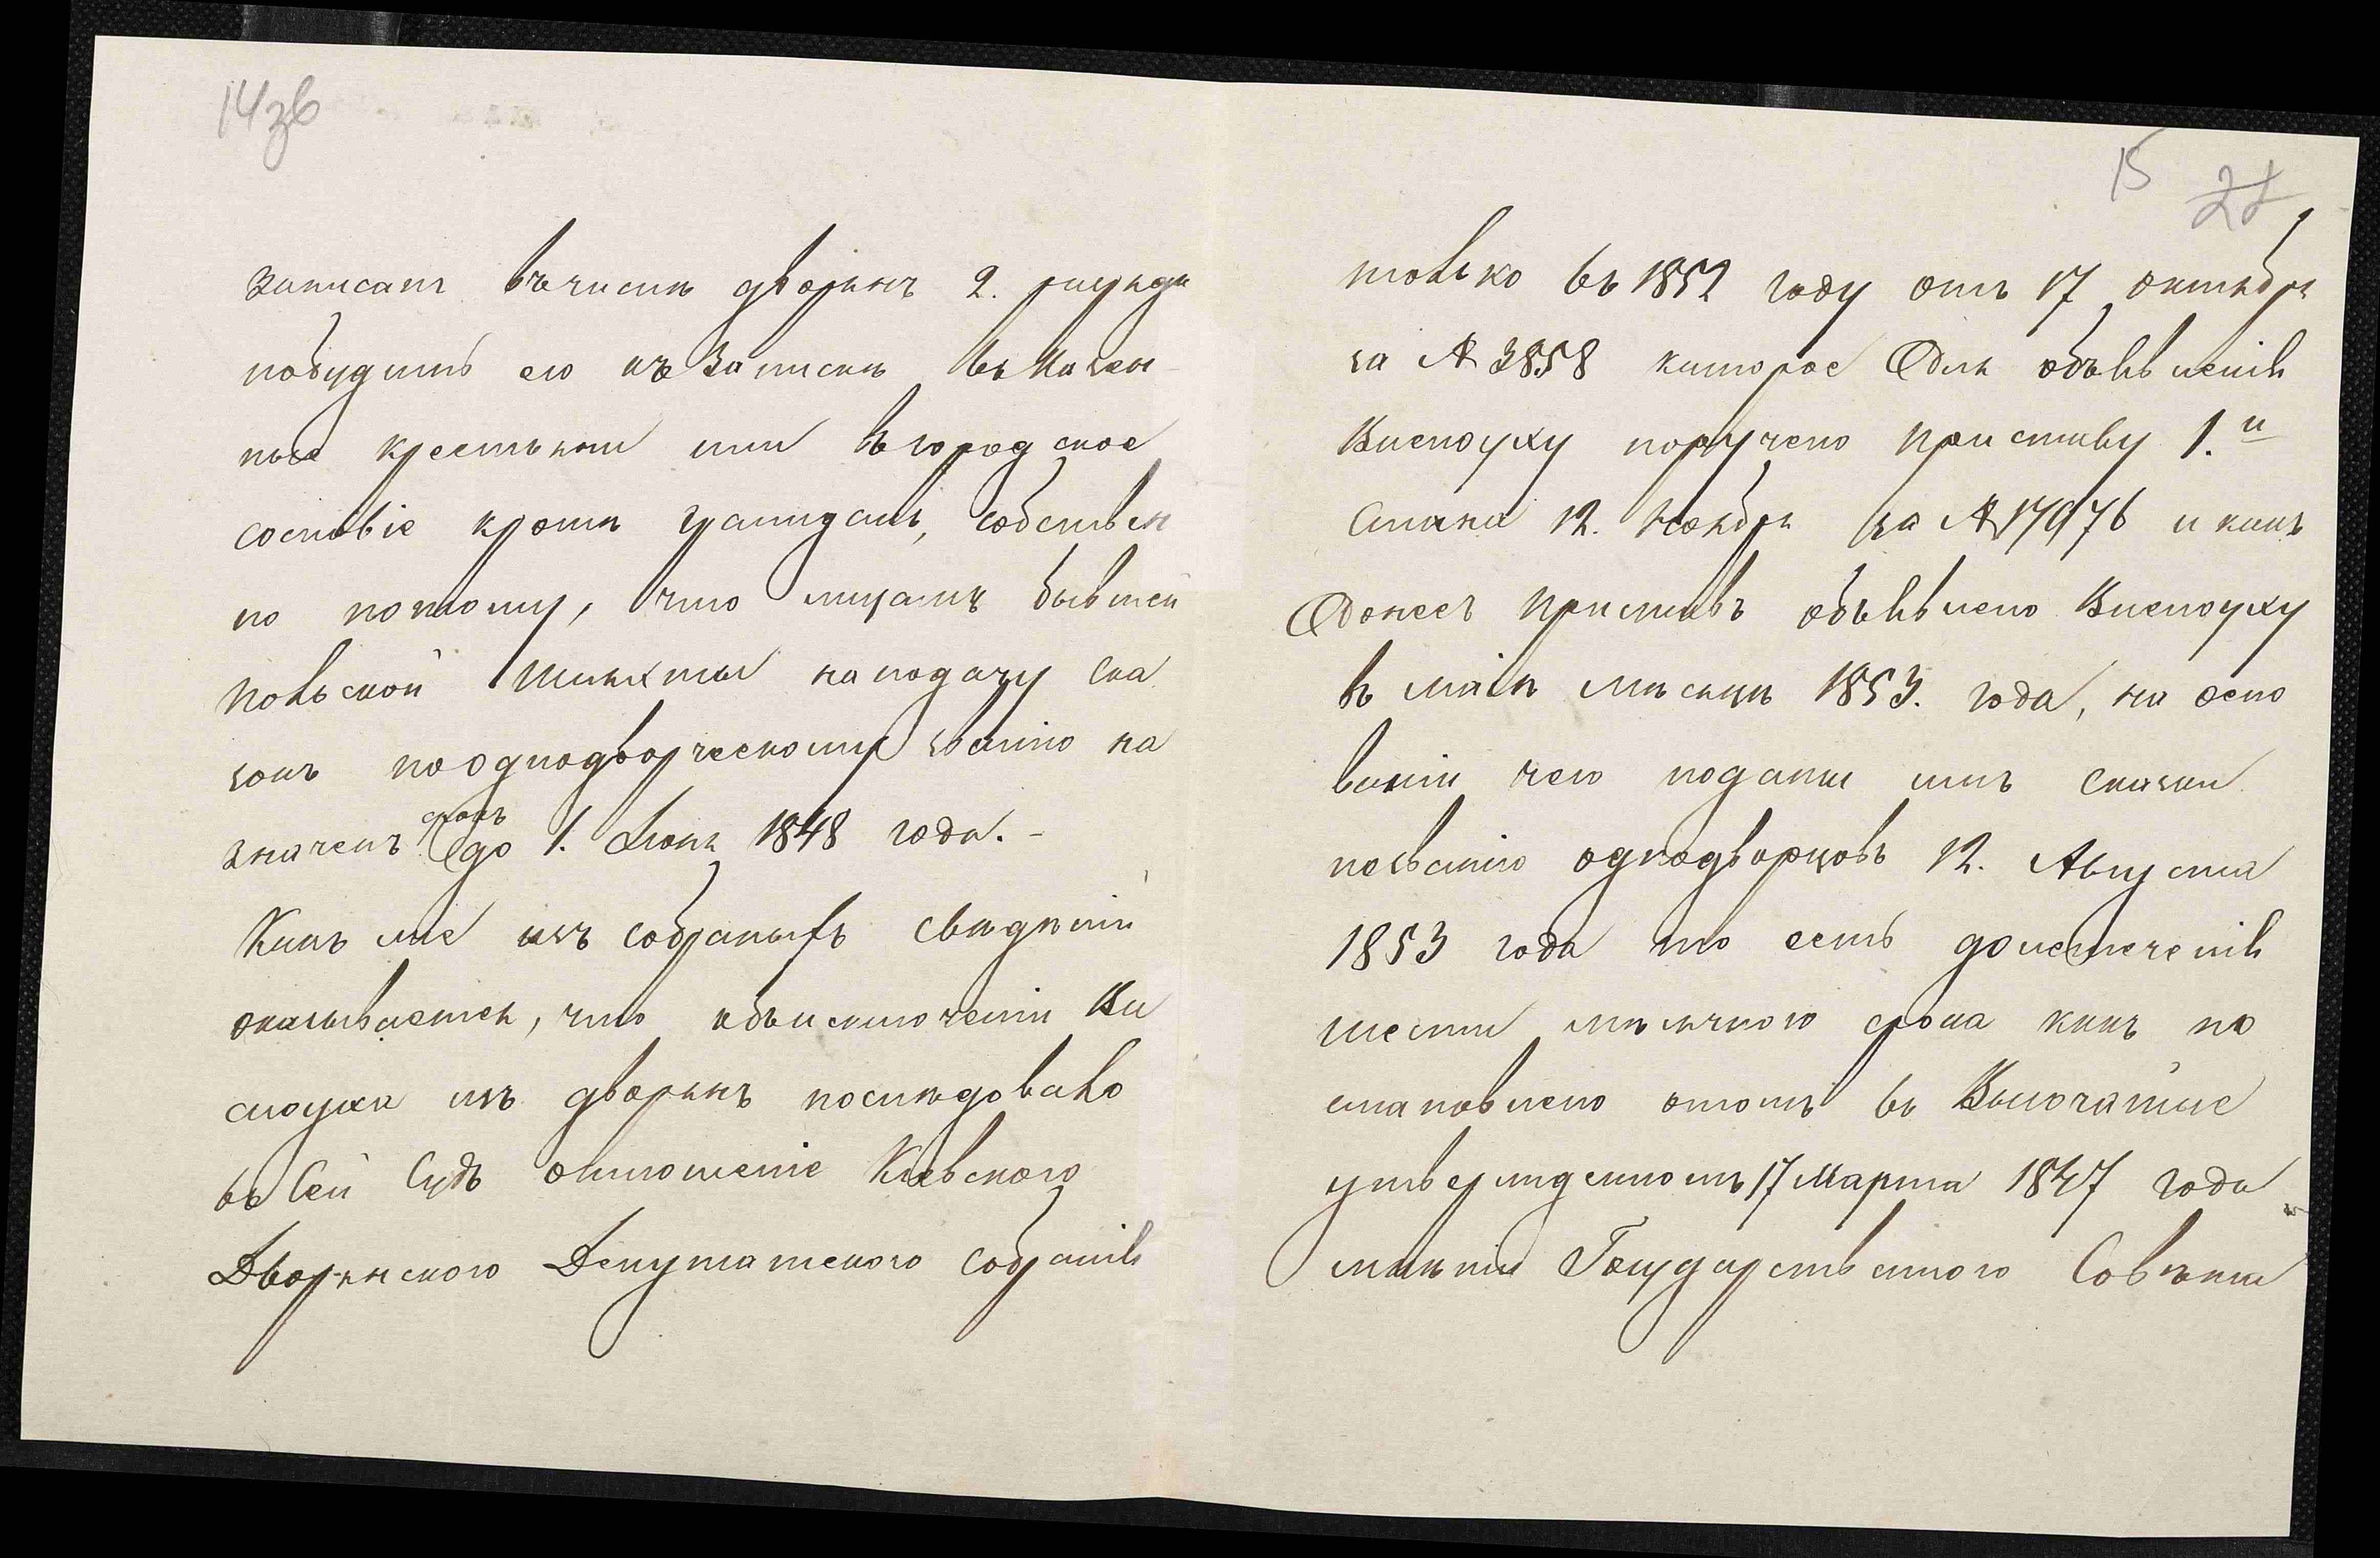 14зв
записан въ числѣ дворянъ 2. разряда
побудить его къ записки въ казен
ные крестьяни или въ городское
сословіе кромѣ граждан, собствен
но потому, что лицамъ бывшей
польской шляхты на подачу ска
зокъ по однодворческому званію на
значенъ срокъ до 1. Июня 1848 года. -
Какъ же изъ собраныхъ свѣдѣній
оказывается, что объ исключеніи Ви
слоуха изъ дворянъ послѣдовало
въ Сей Судъ отношеніе Кіевского
Дворянского Депутатского Собранія
15 22
только въ 1852 году отъ 17 октября
за № 3858 которое для объявленія
Вислоуху поручено приставу 1.й
Стана 12. Ноября за № 17976 и какъ
донесъ приставъ объявлено Вислоуху
въ маіѣ мѣсяцѣ 1853. года, на осно
ваніи чего поданы имъ сказки
по званію однодворцовъ 12. Августа
1853 года то есть до истеченія
шести мѣсячного срока какъ по
становлено отомъ въ Высочайше
утвержденномъ 17 Марта 1847 года
мнѣніи Государственного Совѣта